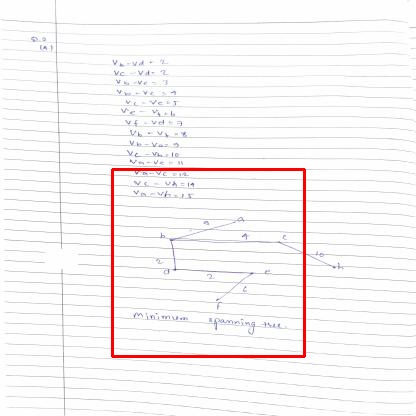 Q.2
(A)
Vb - Vd = 2
Vc - Vd = 2
Vb - Vc = 4
Vc - Ve = 5
Ve - Vf = 6
Vf - Vd = 7
Vb - Vf = 8
Vb - Va = 9
Vc - Vh = 10
Va - Ve = 11
Va - Vc = 12
Vc - Vh = 14
Va - Vh = 15
9 a
b 4 c
10
2 h
d 2 e
6
f
minimum spanning tree.